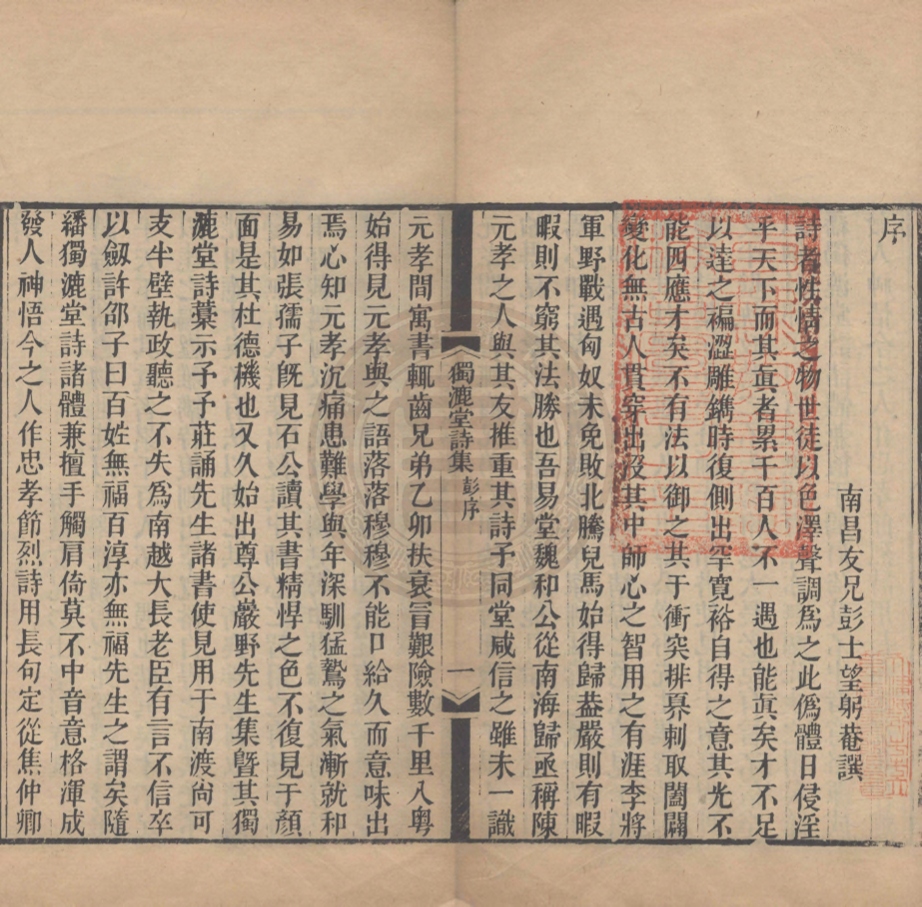 序
南昌友兄彭士望躬菴譔
詩者性情之物世徒以色澤聲調爲之此僞體日侵淫
乎天下而其眞者累千百人不一遇也能眞矣才不足
以達之褊澀雕鐫時復側出罕寬裕自得之意其光不
能四應才矣不有法以御之其于衝突排奡刺取闔闢
變化無古人貫穿出沒其中師心之智用之有涯李將
軍野戰遇匈奴未免敗北騰兒馬始得歸葢嚴則有暇
暇則不窮其法勝也吾易堂魏和公從南海歸亟稱陳
元孝之人與其友推重其詩予同堂咸信之雖未一識
獨漉堂詩集 彭序 一
元孝間寓書輒齒兄弟乙卯扶衰冒艱險數千里入粵
始得見元孝與之語落落穆穆不能口給久而意味出
焉心知元孝沉痛患難學與年深馴猛鷙之氣漸就和
易如張孺子旣見石公讀其書精悍之色不復見于顏
面是其杜德機也又久始出尊公巖野先生集曁其獨
漉堂詩藳示予予莊誦先生諸書使見用于南渡尙可
支半壁執政聽之不失爲南越大長老臣有言不信卒
以劔許邵子曰百姓無福百淳亦無福先生之謂矣隨
繙獨漉堂詩諸體兼擅手觸肩倚莫不中音意格渾成
發人神悟今之人作忠孝節烈詩用長句定從焦仲卿